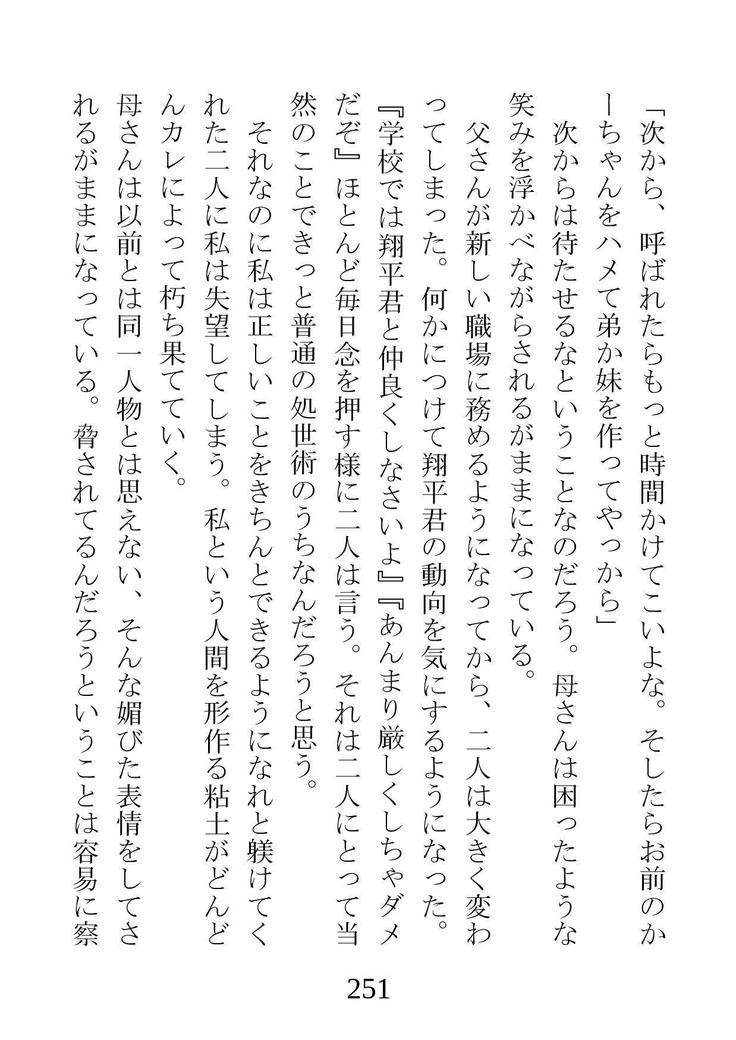 「次から、呼ばれたらもっと時間かけてこいよな。そしたらお前のか
ーちゃんをハメて弟か妹を作ってやっから」
　次からは待たせるなということなのだろう。母さんは困ったような
笑みを浮かべながらされるがままになっている。
　父さんが新しい職場に務めるようになってから、二人は大きく変わ
ってしまった。何かにつけて翔平君の動向を気にするようになった。
『学校では翔平君と仲良くしなさいよ』『あんまり厳しくしちゃダメ
だぞ』ほとんど毎日念を押す様に二人は言う。それは二人にとって当
然のことできっと普通の処世術のうちなんだろうと思う。
　それなのに私は正しいことをきちんとできるようになれと躾けてく
れた二人に私は失望してしまう。私という人間を形作る粘土がどんど
んカレによって朽ち果てていく。
母さんは以前とは同一人物とは思えない、そんな媚びた表情をしてさ
れるがままになっている。脅されてるんだろうということは容易に察
251